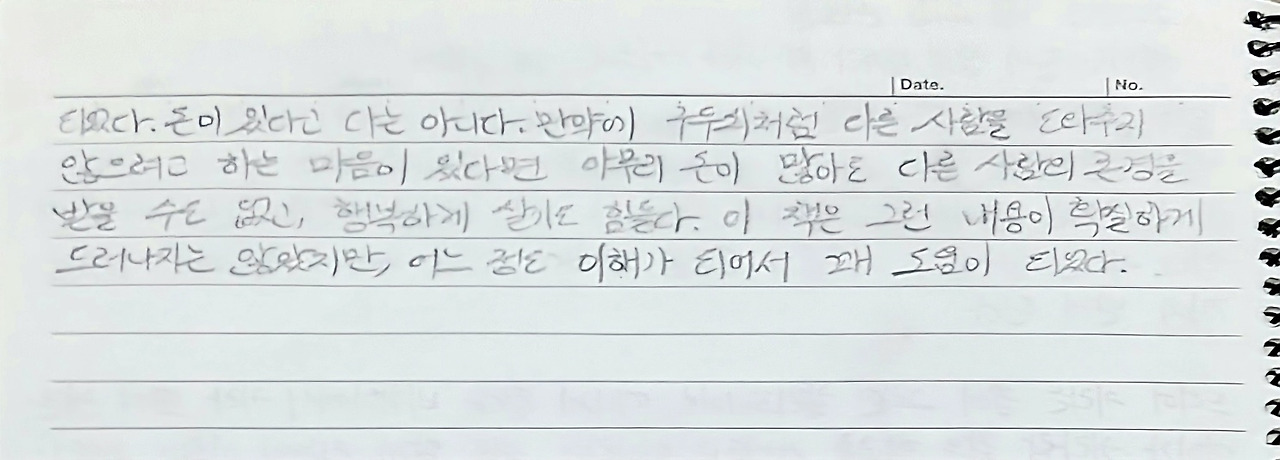 Date. No.
되었다. 돈이 있다고 다는 아니다. 만약에 구두쇠처럼 다른 사람을 도와주지
않으려고 하는 마음이 있다면 아무리 돈이 많아도 다른 사람의 존경을
받을 수도 없고, 행복하게 살기도 힘들다. 이 책은 그런 내용이 확실하게
드러나지는 않았지만, 어느 정도 이해가 되어서 꽤 도움이 되었다.